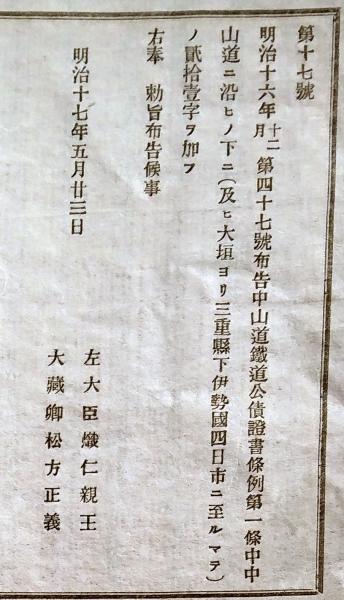 第十七號
明治十六年十二月第四十七號布告中山道鐵道公債證書條例第一條中中
山道ニ沿ヒノ下ニ(及ヒ大垣ヨリ三重縣下伊勢國四日市ニ至ルマテ)
ノ貳拾壹字ヲ加フ
右奉 勅旨布告候事
明治十七年五月廿三日
左大臣熾仁親王
大藏卿松方正義